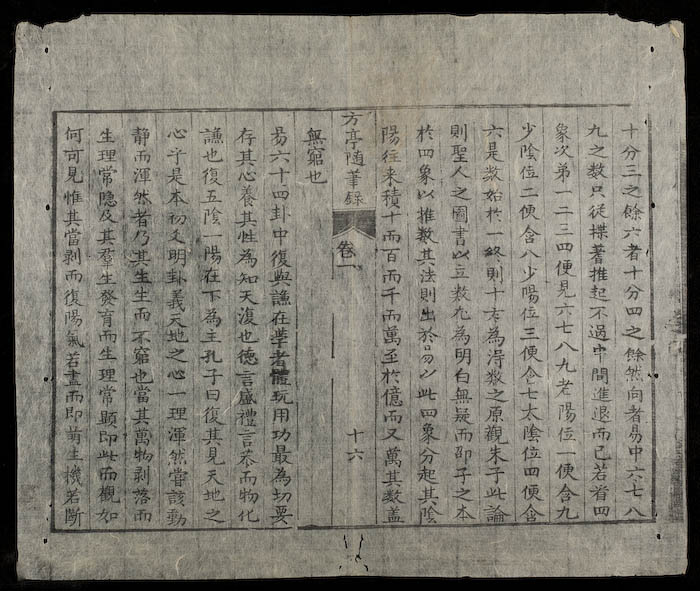 十分三之餘六者十分四之餘然向者易中六七八
九之数只從揲蓍推起不過中間進退而已若看四
象次第一二三四便見六七八九老陽位一便含九
少陰位二便含八少陽位三便含七太陰位四便含
六是数始於一終則十者為淂数之原觀朱子此論
則聖人之圖書以立数尤為明白無疑而邵子之本
於四象以推数其法則出於易以此四象分起其陰
陽往来積十而百而千而萬至於億而又萬其数盖
無窮也
方亭随筆録
卷一
十六
易六十四卦中復與謙在學者體玩用功最為切要
存其心養其性為知天復也德言盛禮言恭而物化
謙也復五陰一陽在下為主孔子曰復其見天地之
心乎是本初爻明卦義天地之心一理渾然嘗該動
静而渾然者乃其生生而不窮也當其萬物剥落而
生理常隐及其發生發育而生理常顕即此而觀如
何可見惟其當剥而復陽氣若盡而即萌生機若断